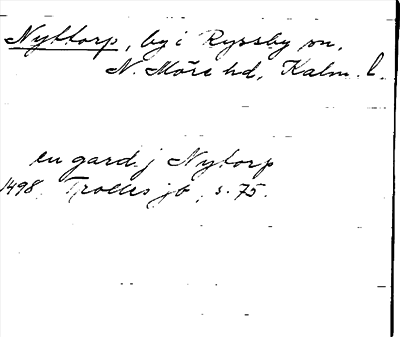 Nyttorp, by i Ryssby sn,
N. Möre hd, Kalm. l.
en gard j Nytorp
1498, Trolles jb, s. 75.